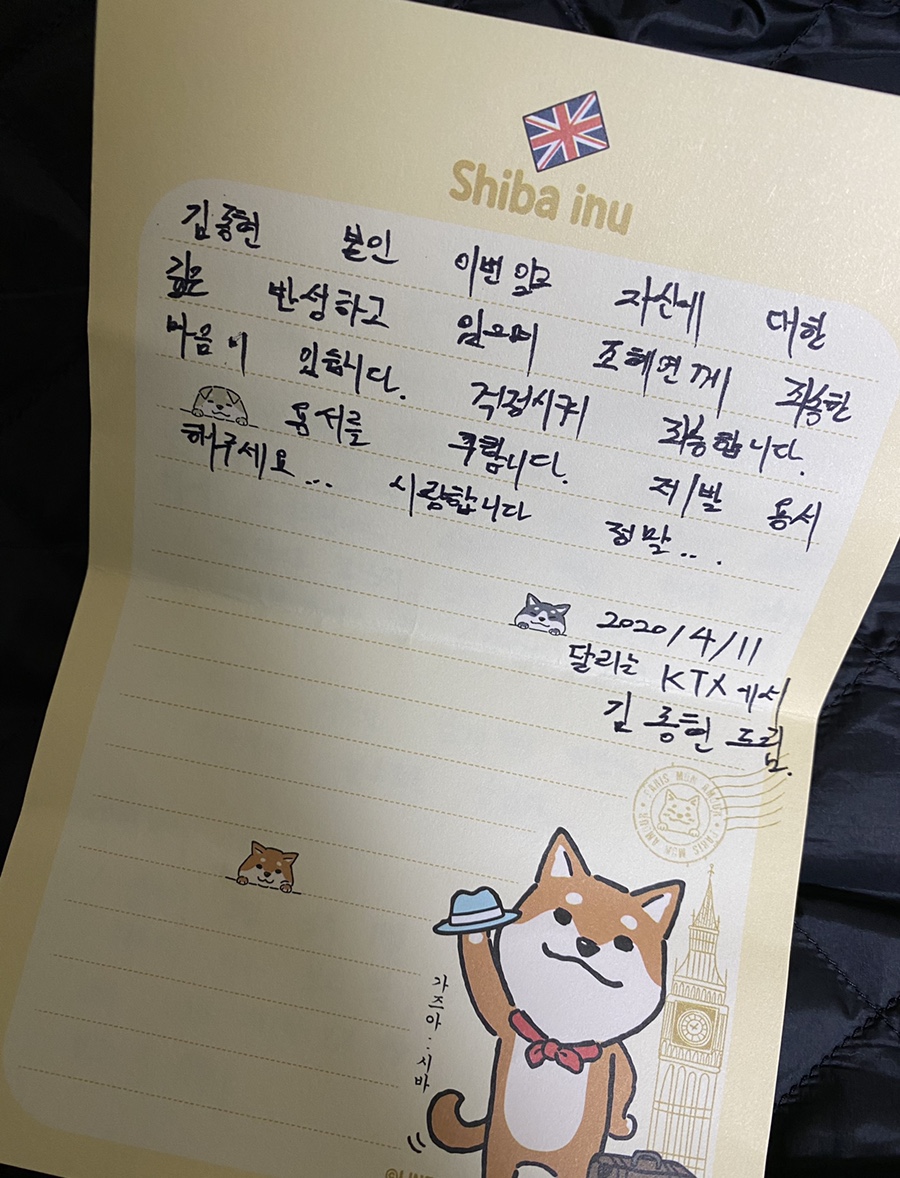 Shiba inu
김종현 본인 이번 일로 자신에 대한
깊은 반성하고 있으며 조혜연께 죄송한
마음이 있습니다. 걱정시켜 죄송합니다.
용서를 구합니다. 제발 용서
해주세요... 사랑합니다 정말...
2020/4/11
달리는 KTX에서
김종현 드림.
PARIS MON AMOUR PARIS MON AMOUR
가즈아 : 시바